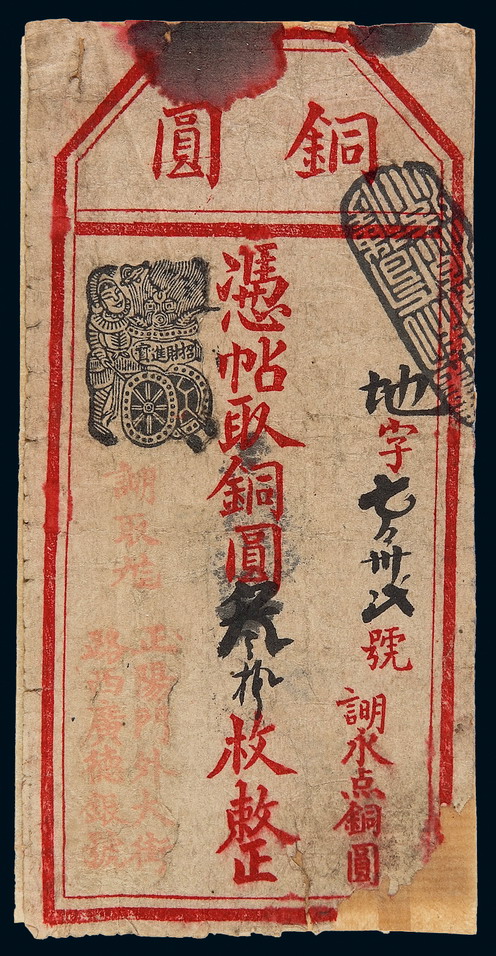 銅圓
地字七卅弍號
永点銅圓
憑帖取銅圓叁拾枚整
招財進寶
取
正陽門外大街
路西廣德銀號